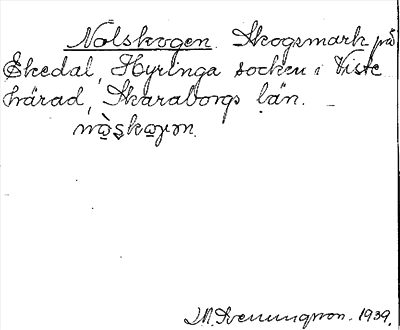 Nolskogen. Skogsmark på
Ekedal, Hyringa socken i Viste
härad, Skaraborgs län.
J. M. Svenungsson. 1939.